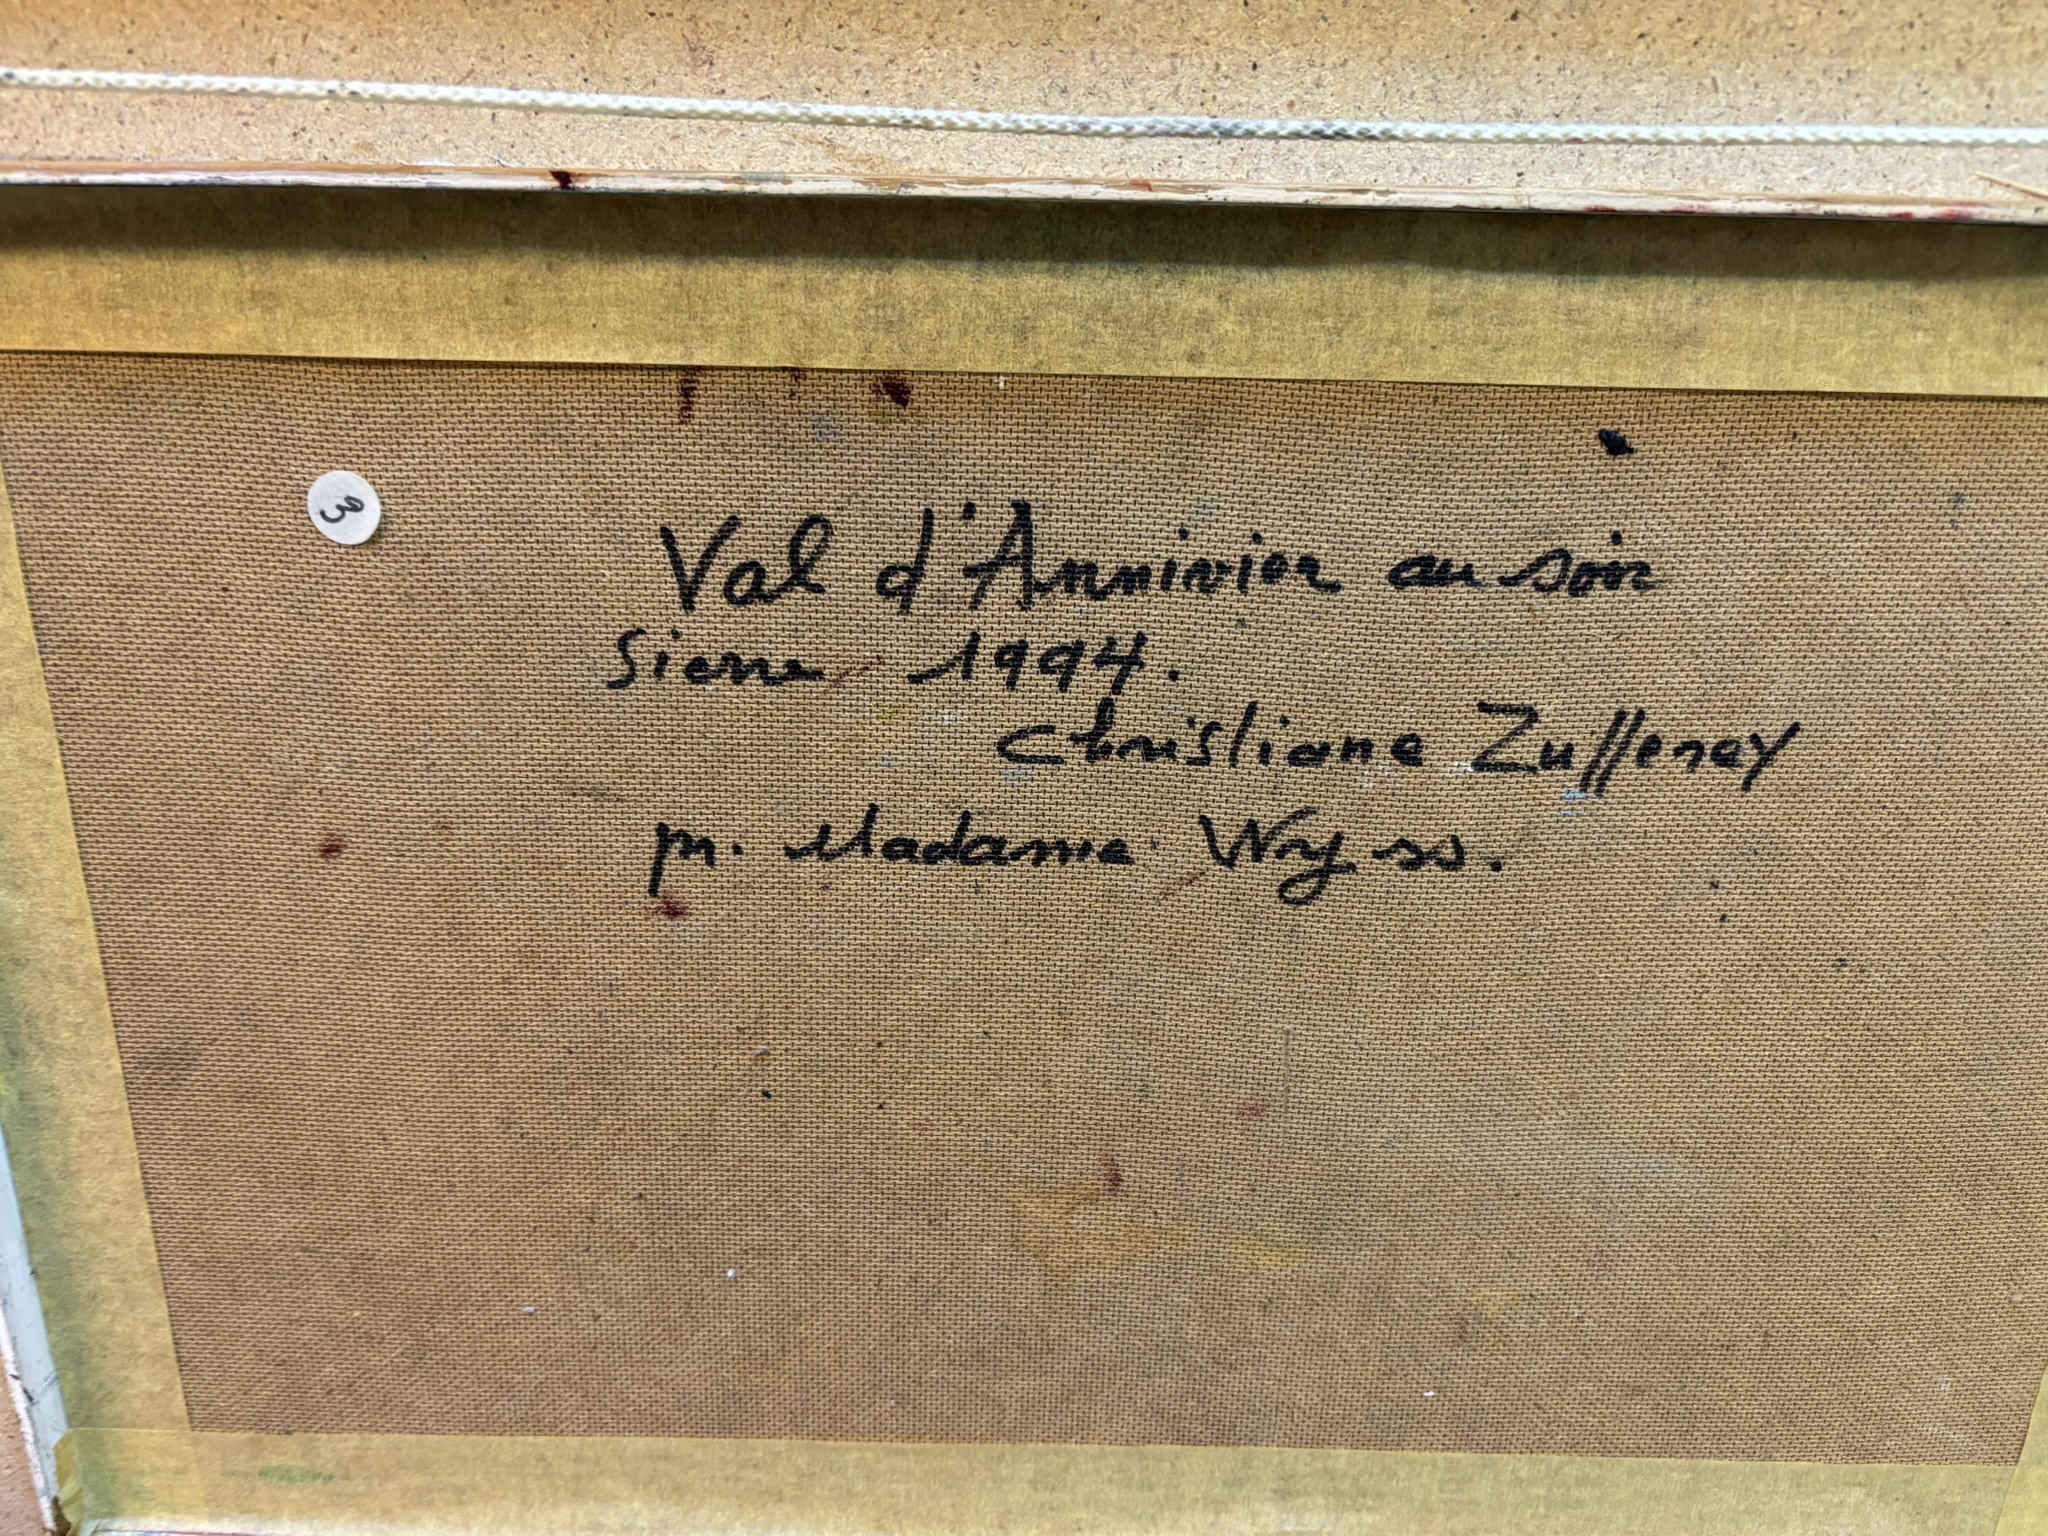 3
Val d'Annivier au soir
Sierre 1994.
Christiane Zufferey
pr. Madame Wyss.